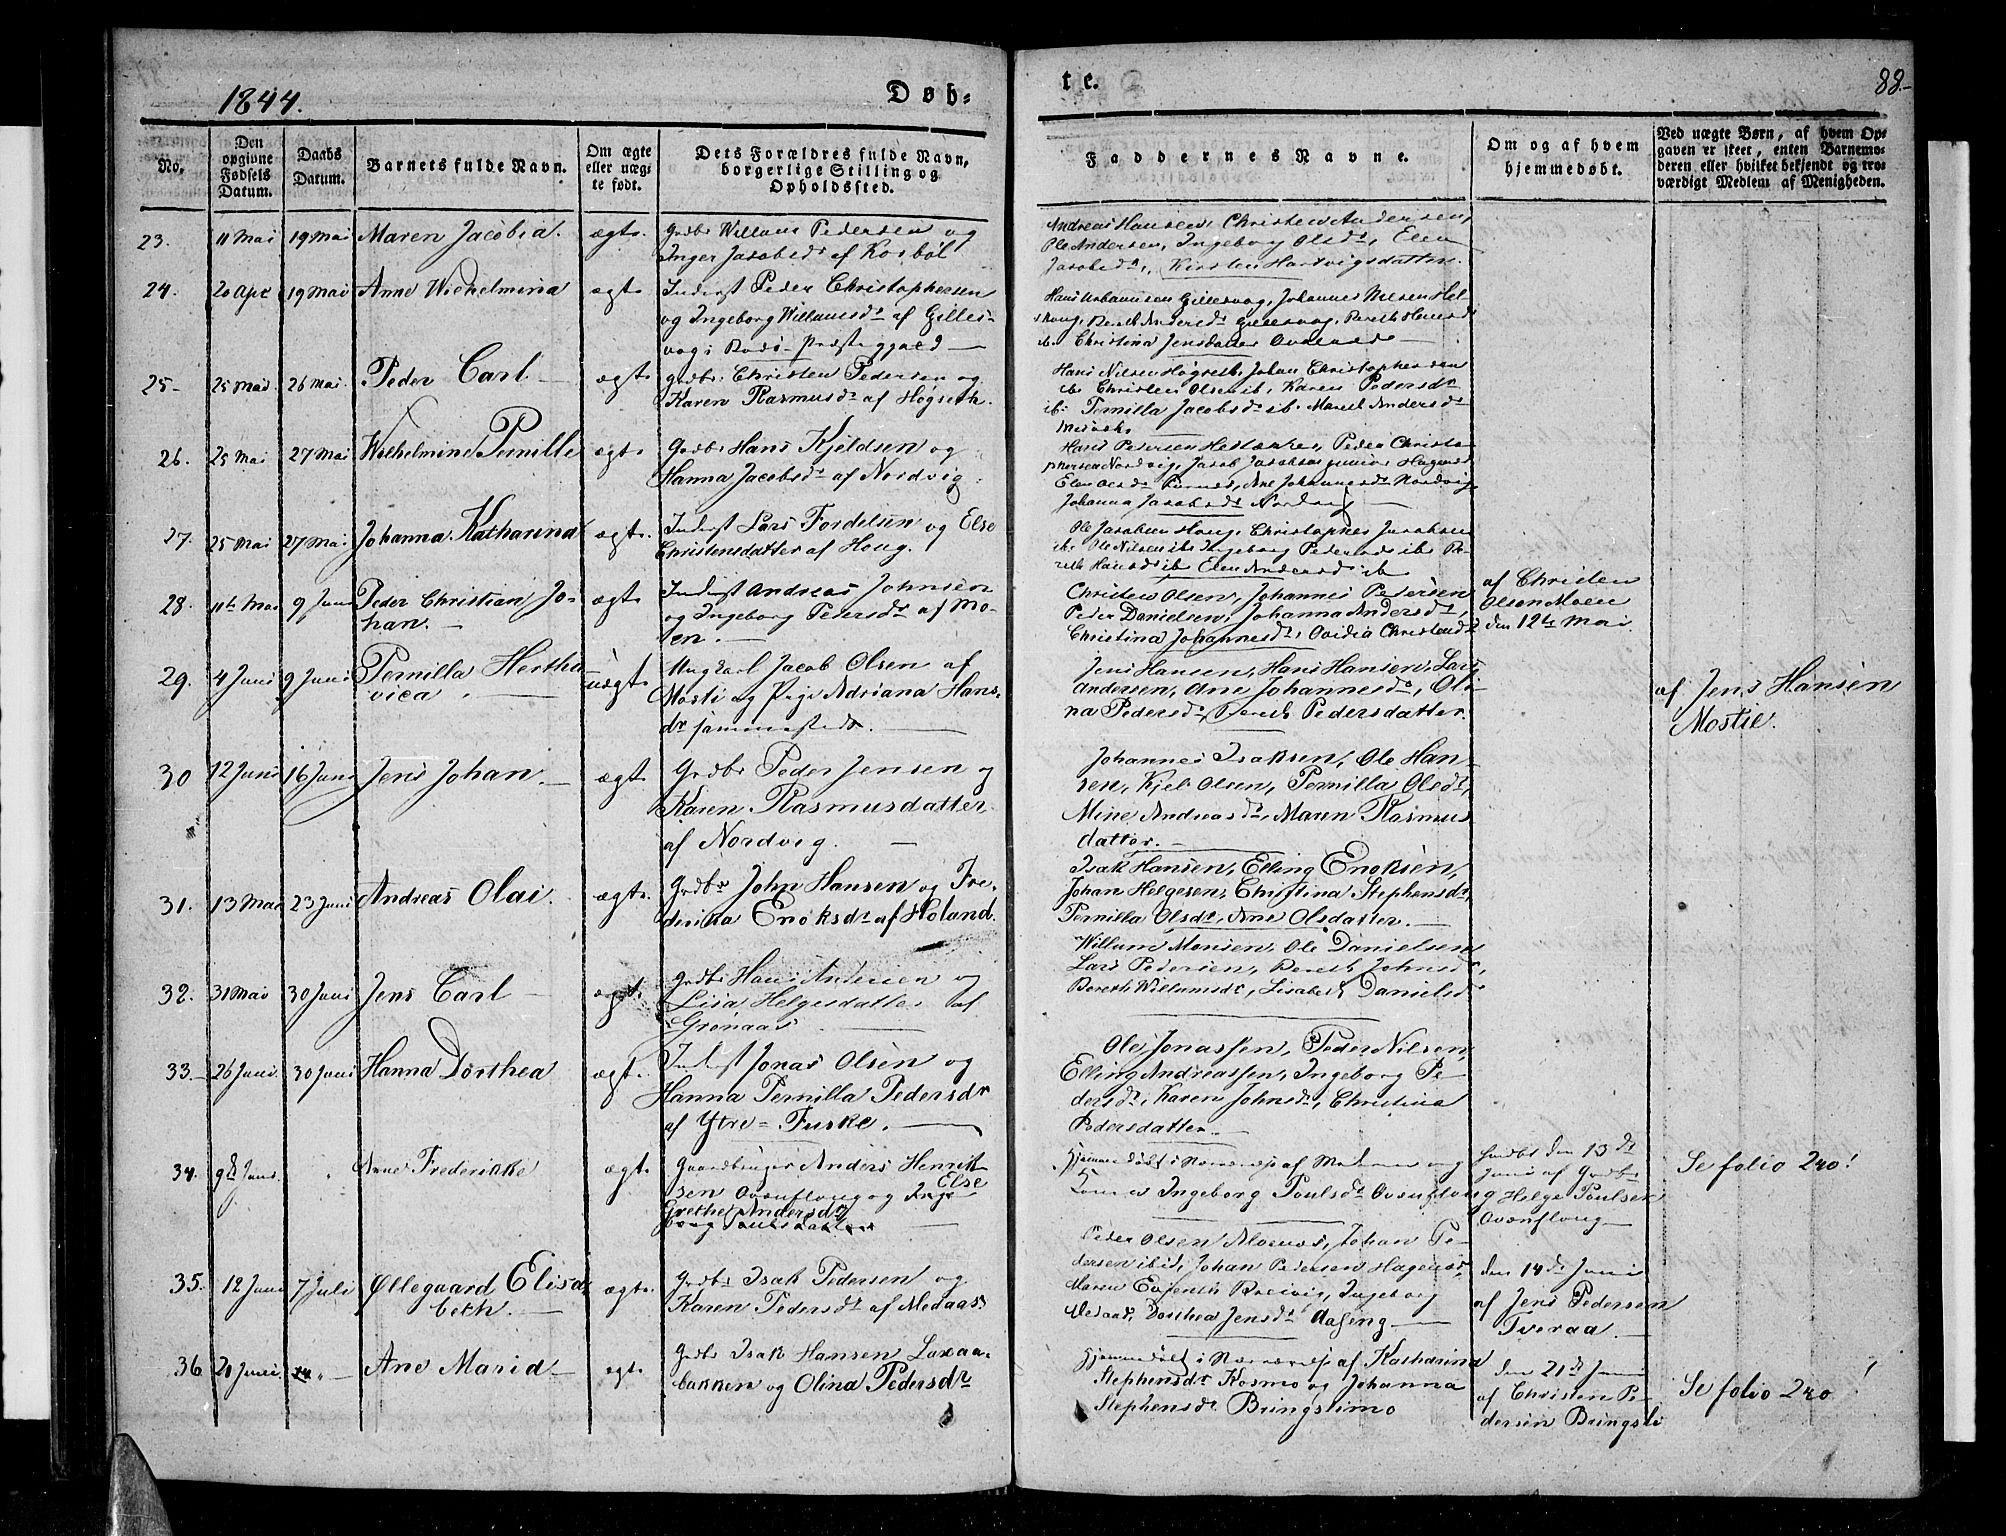 1844.
Døb-
te.
88.
No.
Den opgivne Fødsels Datum.
Daabs Datum.
Barnets fulde Navn.
Om ægte eller uægte født.
Dets Forældres fulde Navn, borgerlige Stilling og Opholdssted.
Faddernes Navne.
Om og af hvem hjemmedøbt.
Ved uægte Børn, af hvem Opgaven er skeet, enten Barnemoderen eller hvilket bekjendt og troværdigt Medlem af Menigheden.
23. 11 Mai 19 Mai Maren Jacobia. ægte. Grdbr Willum Pedersen og
Inger Jacobsdr af Kosböl
Andreas Hansen, Christen Andersen,
Ole Andersen, Ingeborg Olsdr, Elen
Jacobsdr, Kirsten Hartvigsdatter.
24. 20 Apr 19 Mai Anne Wilhelmina ægte Inderst Peder Christophersen
og Ingeborg Willumsdr af Gilles-
vog i Bodö Præstegjæld
Gillesvog, Johannes Nilsen Hel-
Bereth Andersdr Gillesvog, Bereth Hansdr
ib. Christina Jensdatter
25 25 Mai 26 Mai Peder Carl ægte Grdbr. Christen Pedersen og
Karen Rasmusdr af Høgseth.
Hans Nilsen Høgseth, Johan Christophersen
ib. Christen Olsen ib. Karen Pedersdr
ib. Pernilla Jacobsdr ib. Marit Andersdr
26. 25 Mai 27 Mai Wilhelmine Pernille ægte Grdbr Hans Kjeldsen og
Hanna Jacobsdr af Nordvig.
Hans Pedersen Peder Christo-
phersen Nordvig, Jacob Jacobsen junior Hagenæs
Elen Olsdr Ane Johannesdr Nordvig
Johanna Jacobsdr Nordvig
27. 25 Mai 27 Mai Johanna Katharina ægte. Inderst Lars Fordelsen og Else
Christensdatter af Houg.
Ole Jacobsen Houg, Christopher Jacobsen
ib. Ole Nilsen ib. Ingeborg Pedersdr ib. Be-
reth Hansdr ib Elen Andersdr ib
28. 11te Mai 9 Juni Peder Christian Jo-
han. ægte Inderst Andreas Johnsen
og Ingeborg Pedersdr af Mo-
en.
Christen Olsen, Johannes Pedersen
Peder Danielsen, Johanna Andersdr,
Christina Johannesdr, Ovidia Christensdr
af Christen
Olsen Moen
den 12te Mai
29. 4 Juni 9 Juni Pernilla Hertha
vica uægte Ungkarl Jacob Olsen af
Mosti og Pige Adriana Hans-
dr sammesteds.
Jens Hansen, Hans Hansen, Lars
Andersen, Ane Johannesdr, Oli-
na Pedersdr, Bereth Pedersdatter.
af Jens Hansen
Mostie.
30 12 Juni 16 Juni Jens Johan ægte Grdbr Peder Jensen og
Karen Rasmusdatter
af Nordvig.
Johannes Isaksen, Ole Han-
sen, Kjel Olsen, Pernilla Olsdr,
Mine Andreasdr, Maren Rasmus
datter.
31. 13 Mai 23 Juni Andreas Olai. ægte. Grdbr John Hansen og Fre-
derika Enoksdr af Høland.
Isak Hansen, Elling Enoksen,
Johan Helgesen, Christina Stephensdr,
Pernilla Olsdr, Ane Olsdatter.
32. 31 Mai 30 Juni Jens Carl ægte. Grdbr Hans Andersen og
Lisa Helgesdatter af
Grønaas
Willum Monsen, Ole Danielsen
Lars Pedersen, Bereth Johnsdr,
Bereth Willumsdr, Lisabet Danielsdr
33. 26 Juni. 30 Juni Hanna Dorthea ægte. Inderst Jonas Olsen og
Hanna Pernilla Pedersdr
af Ytre-Fuske.
Ole Jonassen, Peder Nilsen,
Elling Andreassen, Ingeborg Pe-
dersdr, Karen Johnsdr, Christina
Pedersdatter.
34. 9de Juni " Anne Frederikke ægte Gaardbruger Anders Henrik-
sen Ovenfloug og Inge- Else
Grethe Andersdr
borg Poulsdatter
Hjemmedøbt i Nærværelse af Moderen og
Konen Ingeborg Poulsdr Ovenfloug
hmdbt den 13de
Juni af Grdbr
Helge Poulsen
Ovenfloug
Se folio 240!
35. 12 Juni 7 Juli Øllegaard Elisa-
beth. ægte. Grdbr Isak Pedersen og
Karen Pedersdr af Medaas.
Peder Olsen Alvenæs, Johan Pe-
dersen ibid, Johan Pedersen Hagenæs,
Maren Ingeborg
Medaas, Dorthea Jensdr Aaseng
den 14de Juni
af Jens Pedersen
Tveraa.
36 20 Juni Ane Maria ægte Grdbr Isak Hansen Laxaa-
bakken og Olina Pedersdr
Hjemmedøbt i Nærværelse af Katharina
Stephensdr Kosmo og Johanna
Stephensdr Bringslimo
den 21de Juni
af Christen Pe-
dersen Bringsli
Se folio 240!